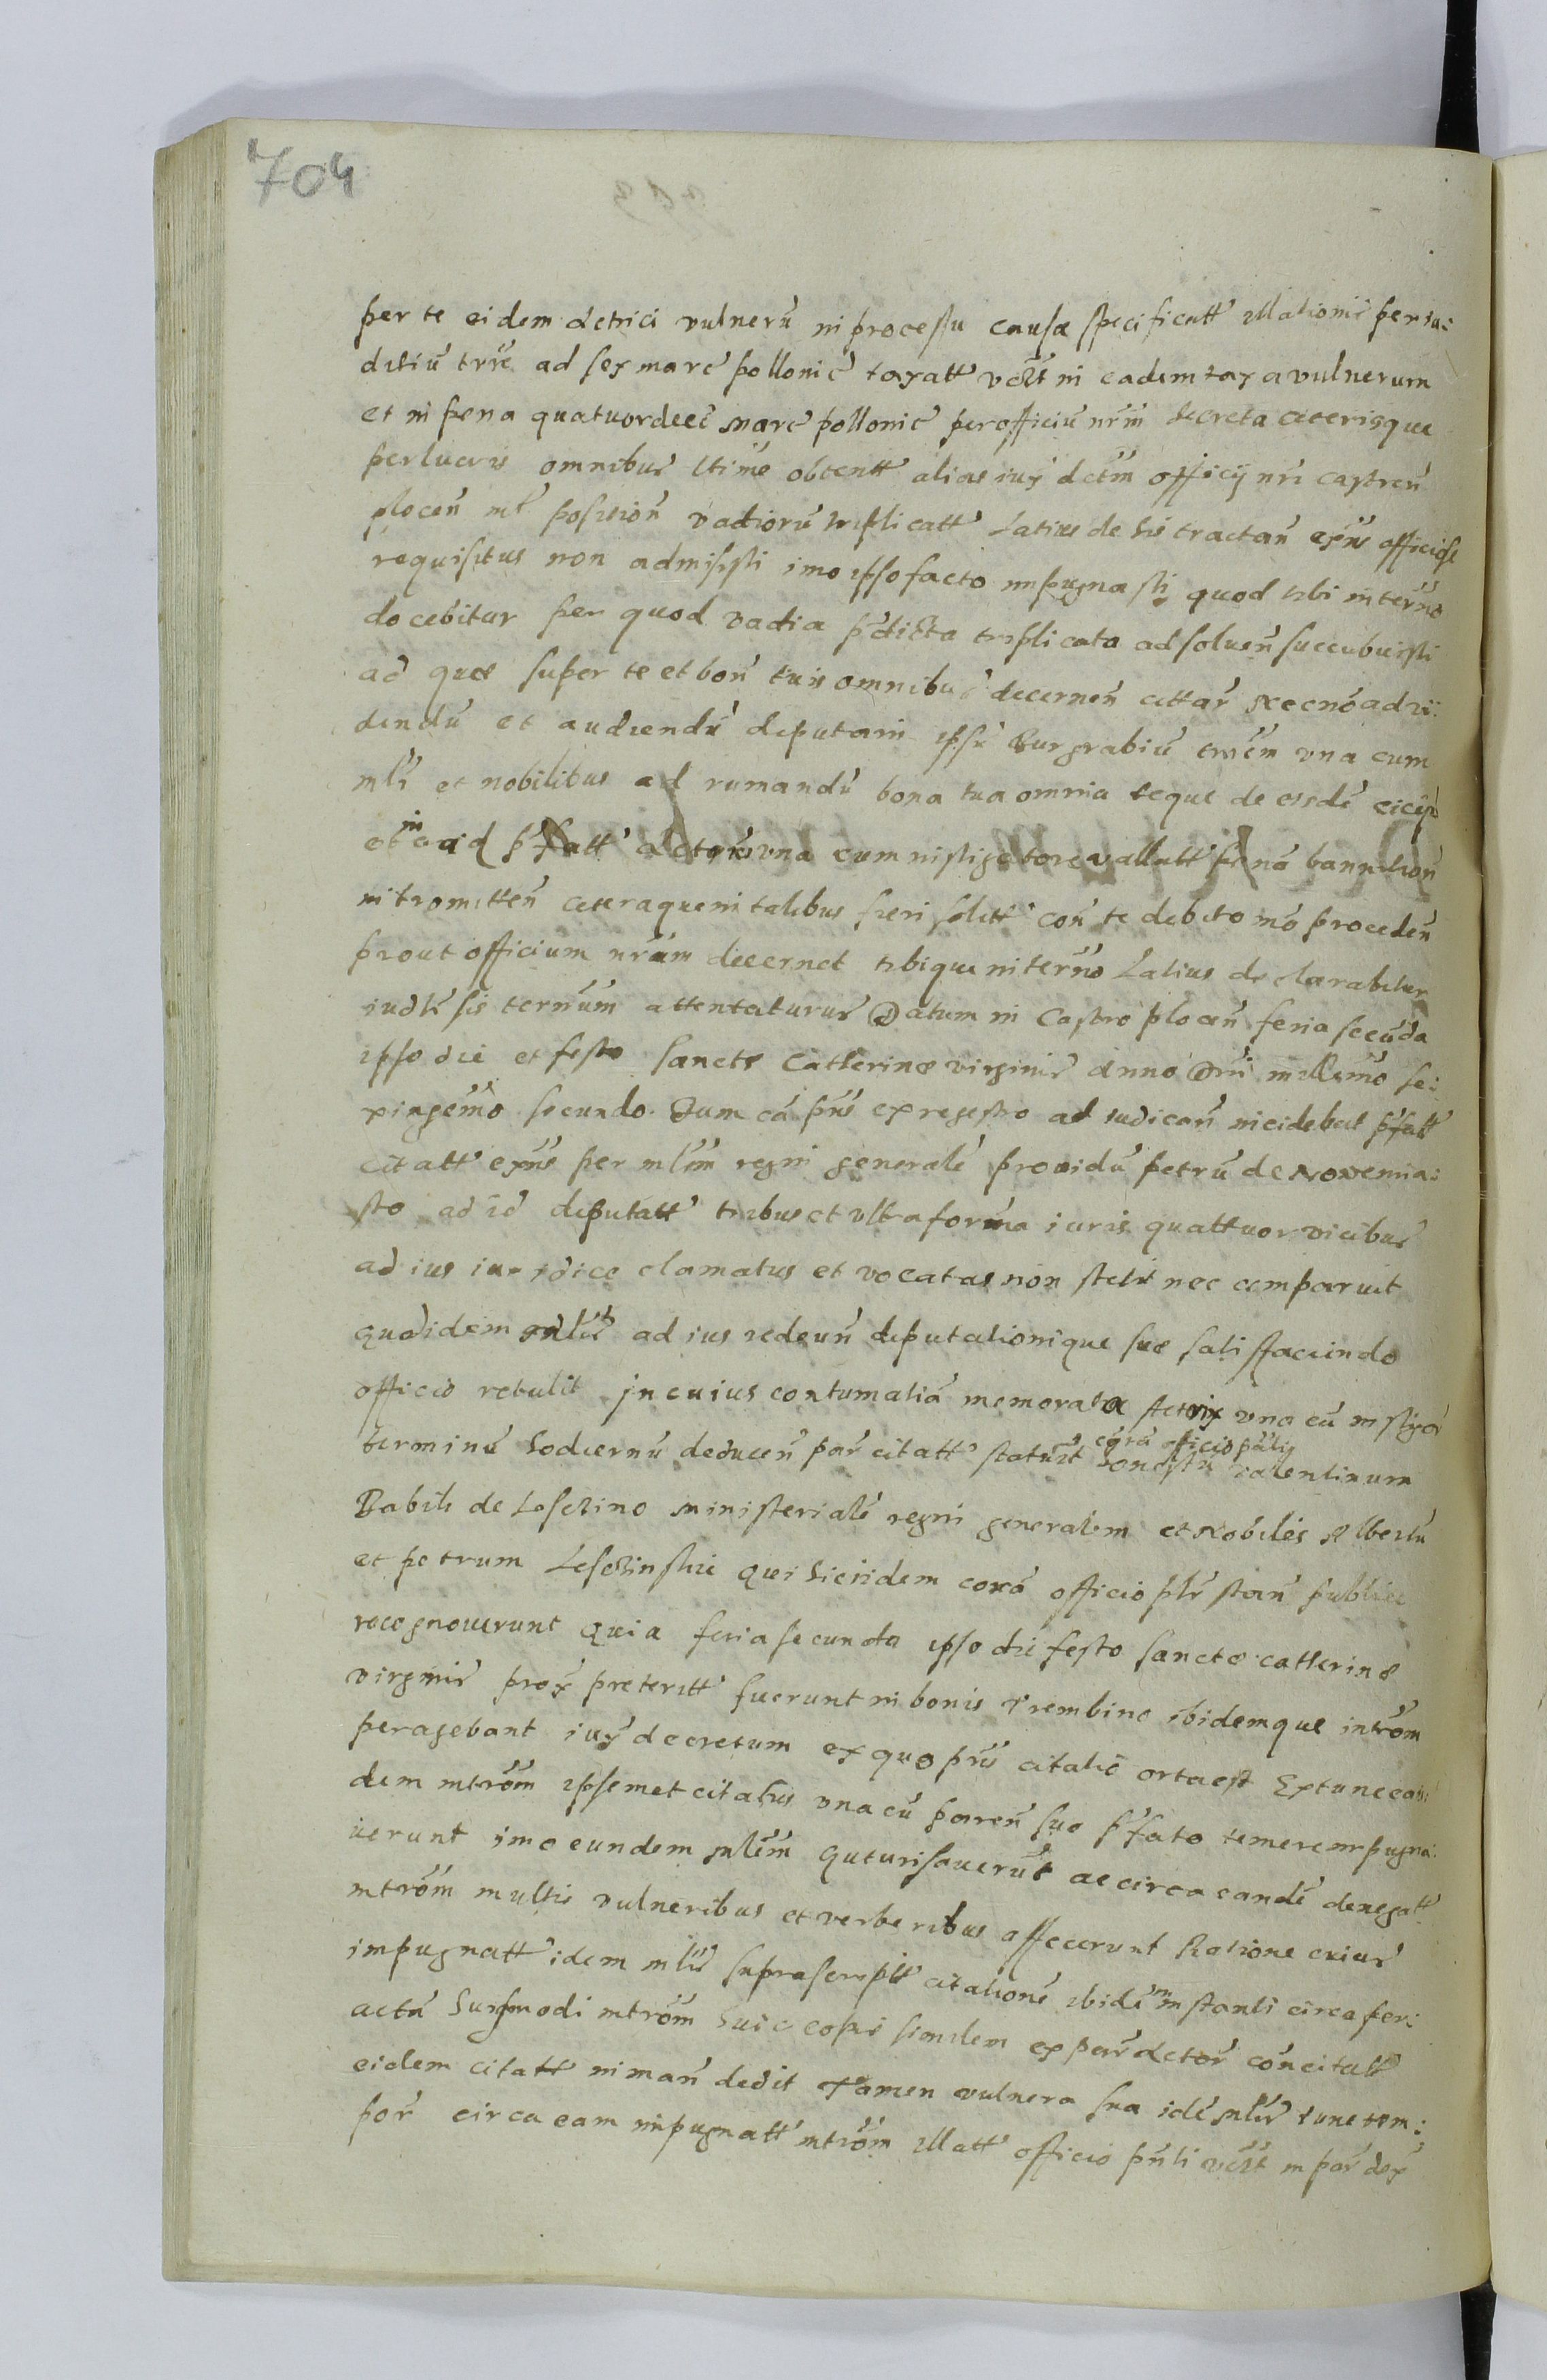 704
per te eidem Actrici vulnerũ in processu causæ specificatt' illationis per iu:
diciũ trre ad sex marc' pollonic' taxatt' vdzt in eadem taxa vulnerum
et in pena quatuordeci marc' pollonic' per officiũ nrm decreta ceterisque
per lucris omnibus ltime obtentt' alias iux dctm officij nri castren
plocen int' position vadiorũ triplicatt' Latius de his tractan exns officiose
requisitus non admisisti imo ipso facto impugnasti quod tibi in termo
docebitur per quod vadia pdicta triplicata ad soluen succubuisti
ad quæ super te et bon' tuis omnibus decernen cittar' Necnõ ad vi:
dendũ et audiendũ deputari ipsũ Burgrabiũ trrem vna cum
mlri et nobilibus ad rumandũ bona tua omnia teque de eisdẽ
et in id pfatt' Actores vna cum instigatore vallatt' penã bannition
intromitten ceteraque in talibus fieri solitt' con te debito mõ proceden
prout officium nrum decernet tibique in termo Latius declarabitur
iudlr' sis termum attentaturus Datum in Castro plocen feria secũda
ipso die et festo Sanctæ Catherinæ virginis Anno Dni millimo se:
xingemo secundo. Dum cã pns ex regestro ad iudican incidebat pfatt
citatt' exns per mlem regni generalẽ prouidũ petrũ de Novemia:
sto ad id deputatt' tribus et vltra formã iuris quattuor vicibus
ad ius iuridice clamatus et vocatus non stetit nec comparuit
quod idem mlis ad ius redeun deputationique suæ satisfaciendo
officio retulit in cuius contumatiã memorata Actrix vna cũ instigor'
coram officio pnti
terminũ hodiernũ deducen par citatt' statuit honestũ valentinum
Babih de Leschino ministerialẽ regni generalem et Nobiles Albertũ
et petrum Leschinskie qui hic ijdem corã officio plr stan publice
recognouerunt Quia feria secunda ipso die festo Sanctæ catherinæ
virginis prox preteritt' fuerunt in bonis Trembino ibidemque introm
peragebant iux decretum ex quo pns citatio orta est Extunc ean:
dem introm ipsemet citatus vna cũ paren suo pfato temere impugna:
uerunt imo eundem mlem guturisauerũt ac circa eandẽ denegatt'
introm multis vulneribus et verberibus affecerunt Ratione cuius
impugnatt' idem mlis suprascriptt' citationẽ ibidẽ in instanti circa per:
actã huismodi introm huic copiæ similem ex par Actor' con citatt'
eidem citatt' in man dedit Tamen vulnera sua idẽ mlis tunc tem:
por' circa eam impugnatt' introm illatt' officio pnti vdzt in par dex